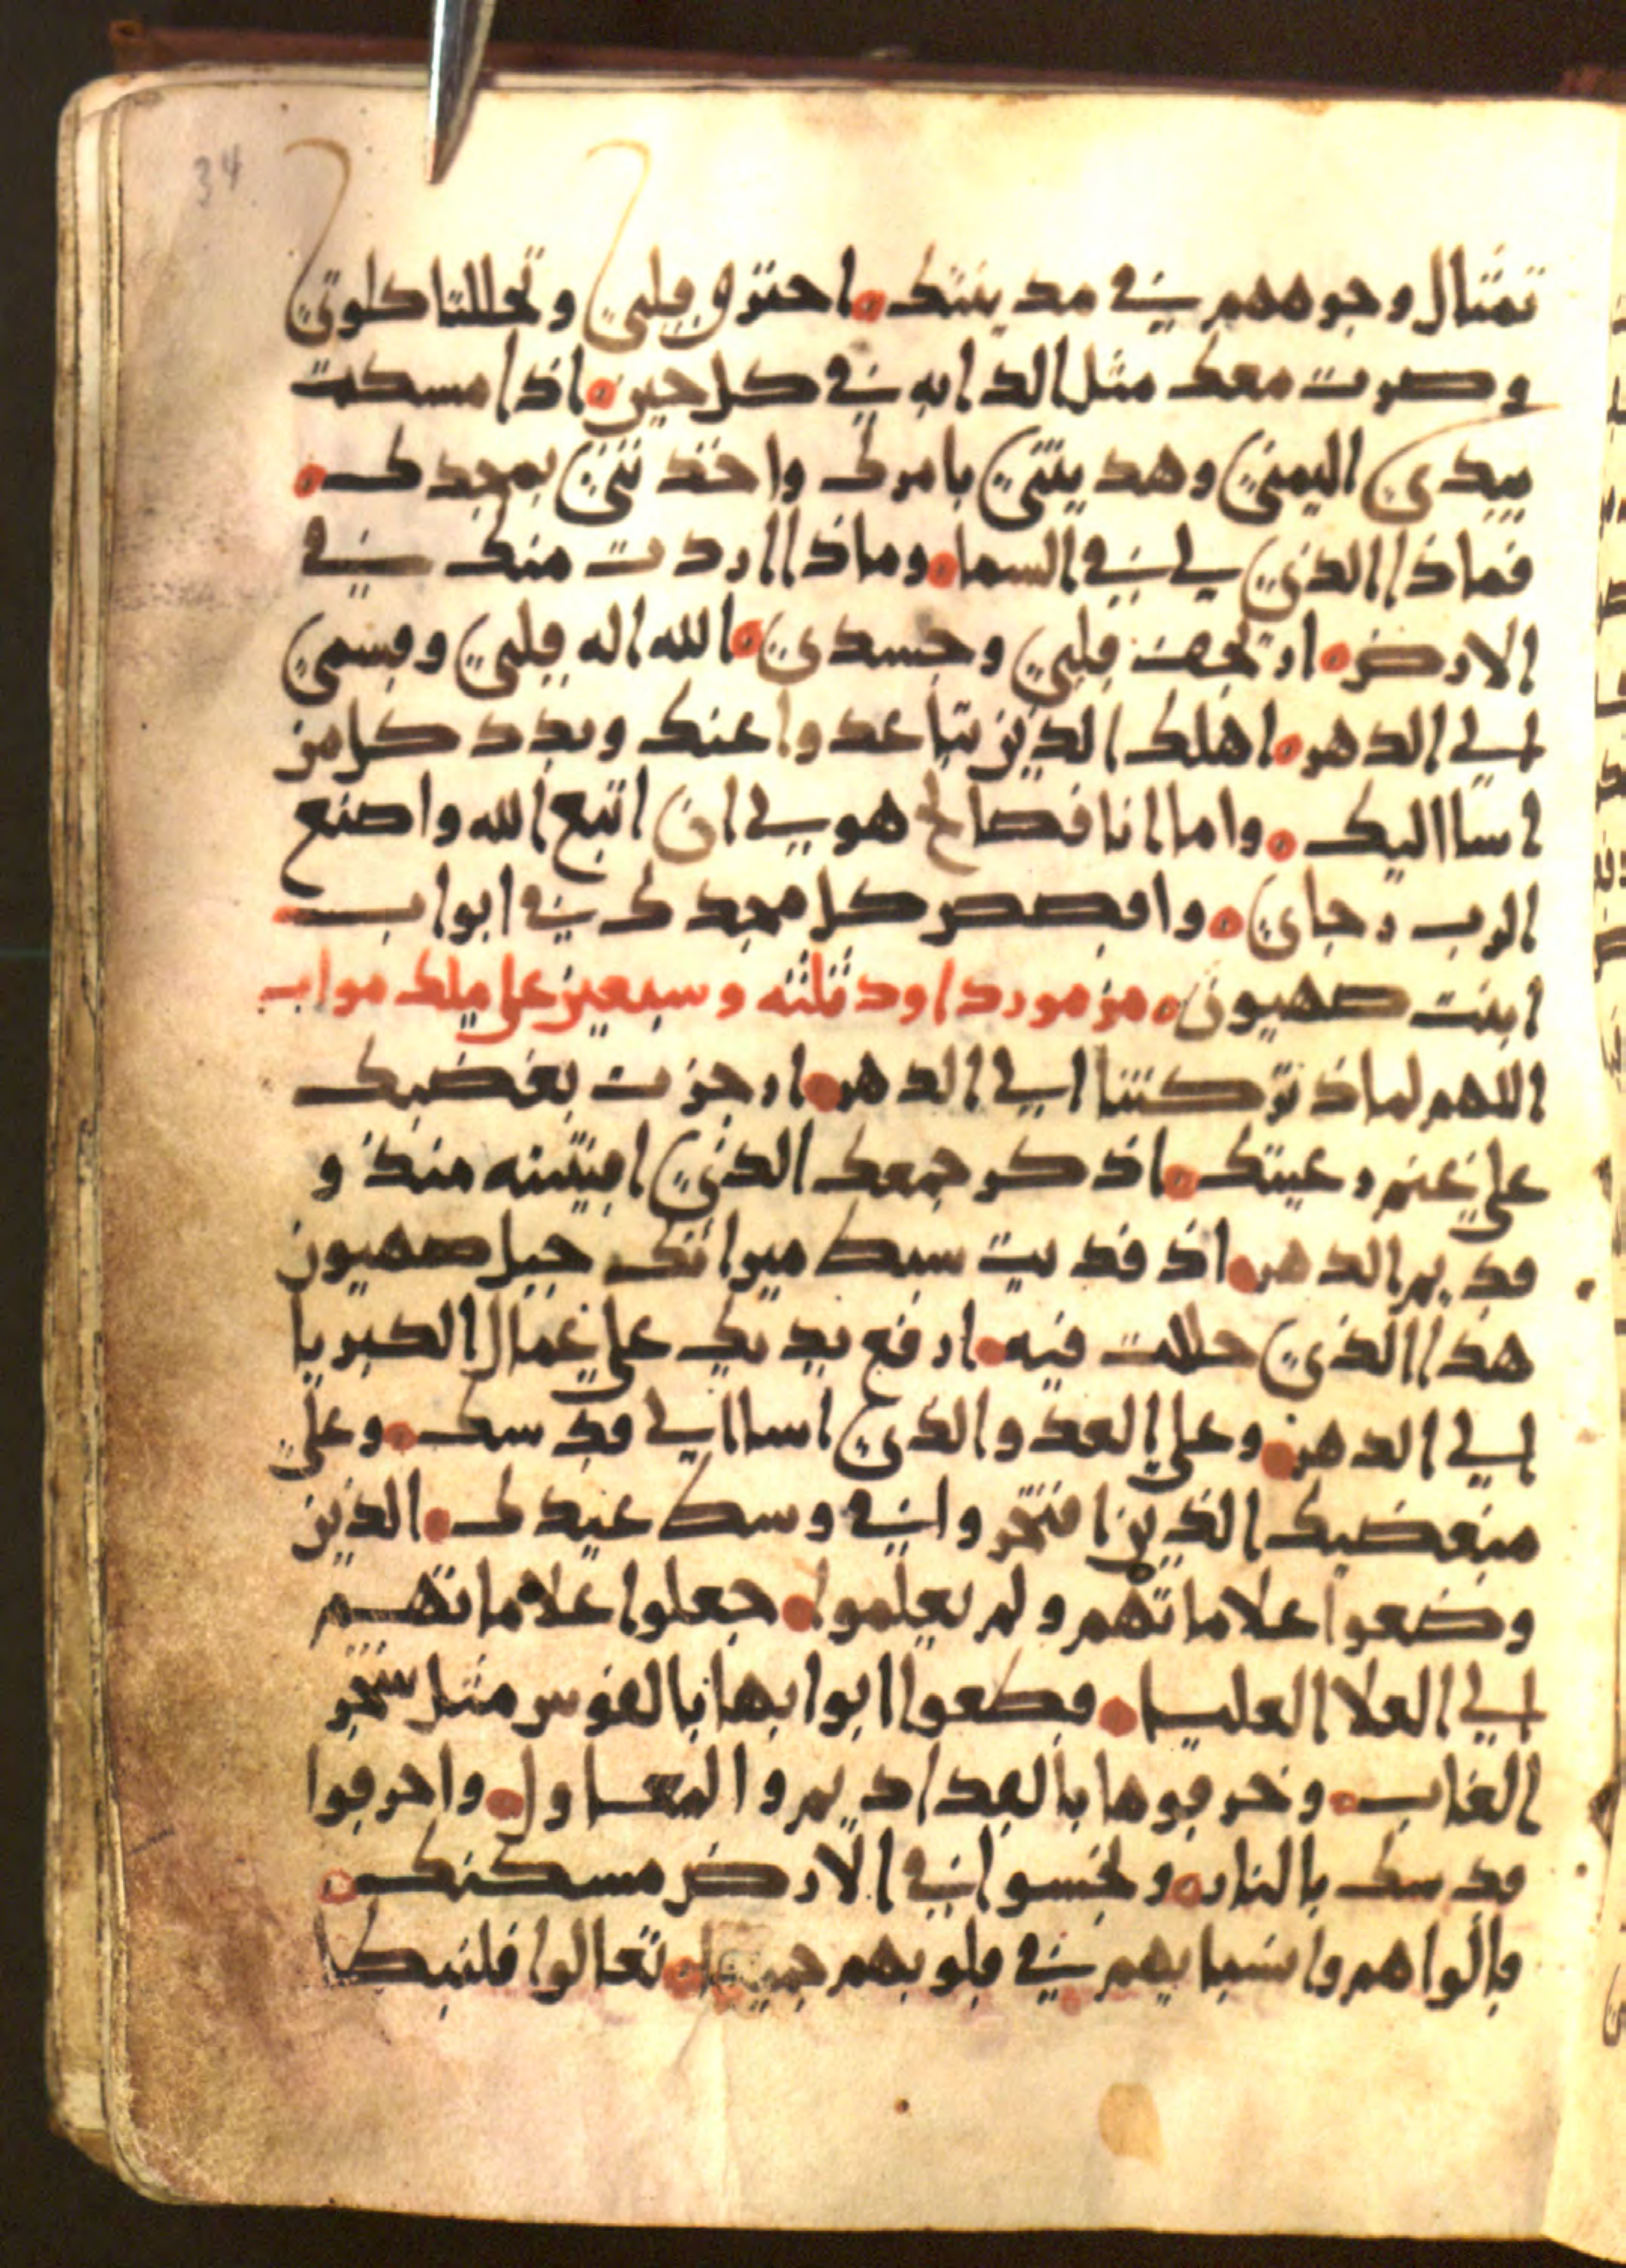 تمثال وجوههم في مدينتك. احترق قلبي وتحللتا كلوتي
وصرت معك مثل الدابه في كل حين. اذا مسكت
بيدي اليمني وهديتني بامرك واخذتني بمجدك.
فماذا الذي لي في السما. وماذا اردت منك في
الارض. ارتجف قلبي وجسدي. الله اله قلبي وقسمي
الي الدهر. اهلك الذين تباعدوا عنك وبدد كل من
اسا اليك. واما انا فصالح هو لي ان اتبع الله واصنع
الرب رجاي. واقصص كل مجدك في ابواب
ابنت صهيون. مزمور داود ثلثه وسبعين علي ملك مواب
اللهم لماذ تركتنا الي الدهر. ارجزت بغضبك
علي غنم رعيتك. اذكر جمعك الذي اقتيته منذ و
قديم الدهر. اذ فديت سبط ميراثك جبل صهيون
هذا الذي حللت فيه. ارفع يديك علي عمال الكبريا
الي الدهر. وعلي العدو الذي اسا الي قدسك. وعلي
مبغضيك الذين افتخروا في وسط عيدك. الذين
وضعوا علاماتهم ولم يعلموا. جعلوا علاماتهم
الي العلا العليا. قطعوا ابوابها بالفوس مثل شجر
الغاب. وخرقوها بالقداديم والمعاول. واحرقوا
قدسك بالنار. ونجسوا في الارض مسكنك.
قالوا هم وانسبايهم في قلوبهم جميعا. تعالوا فلنبطل